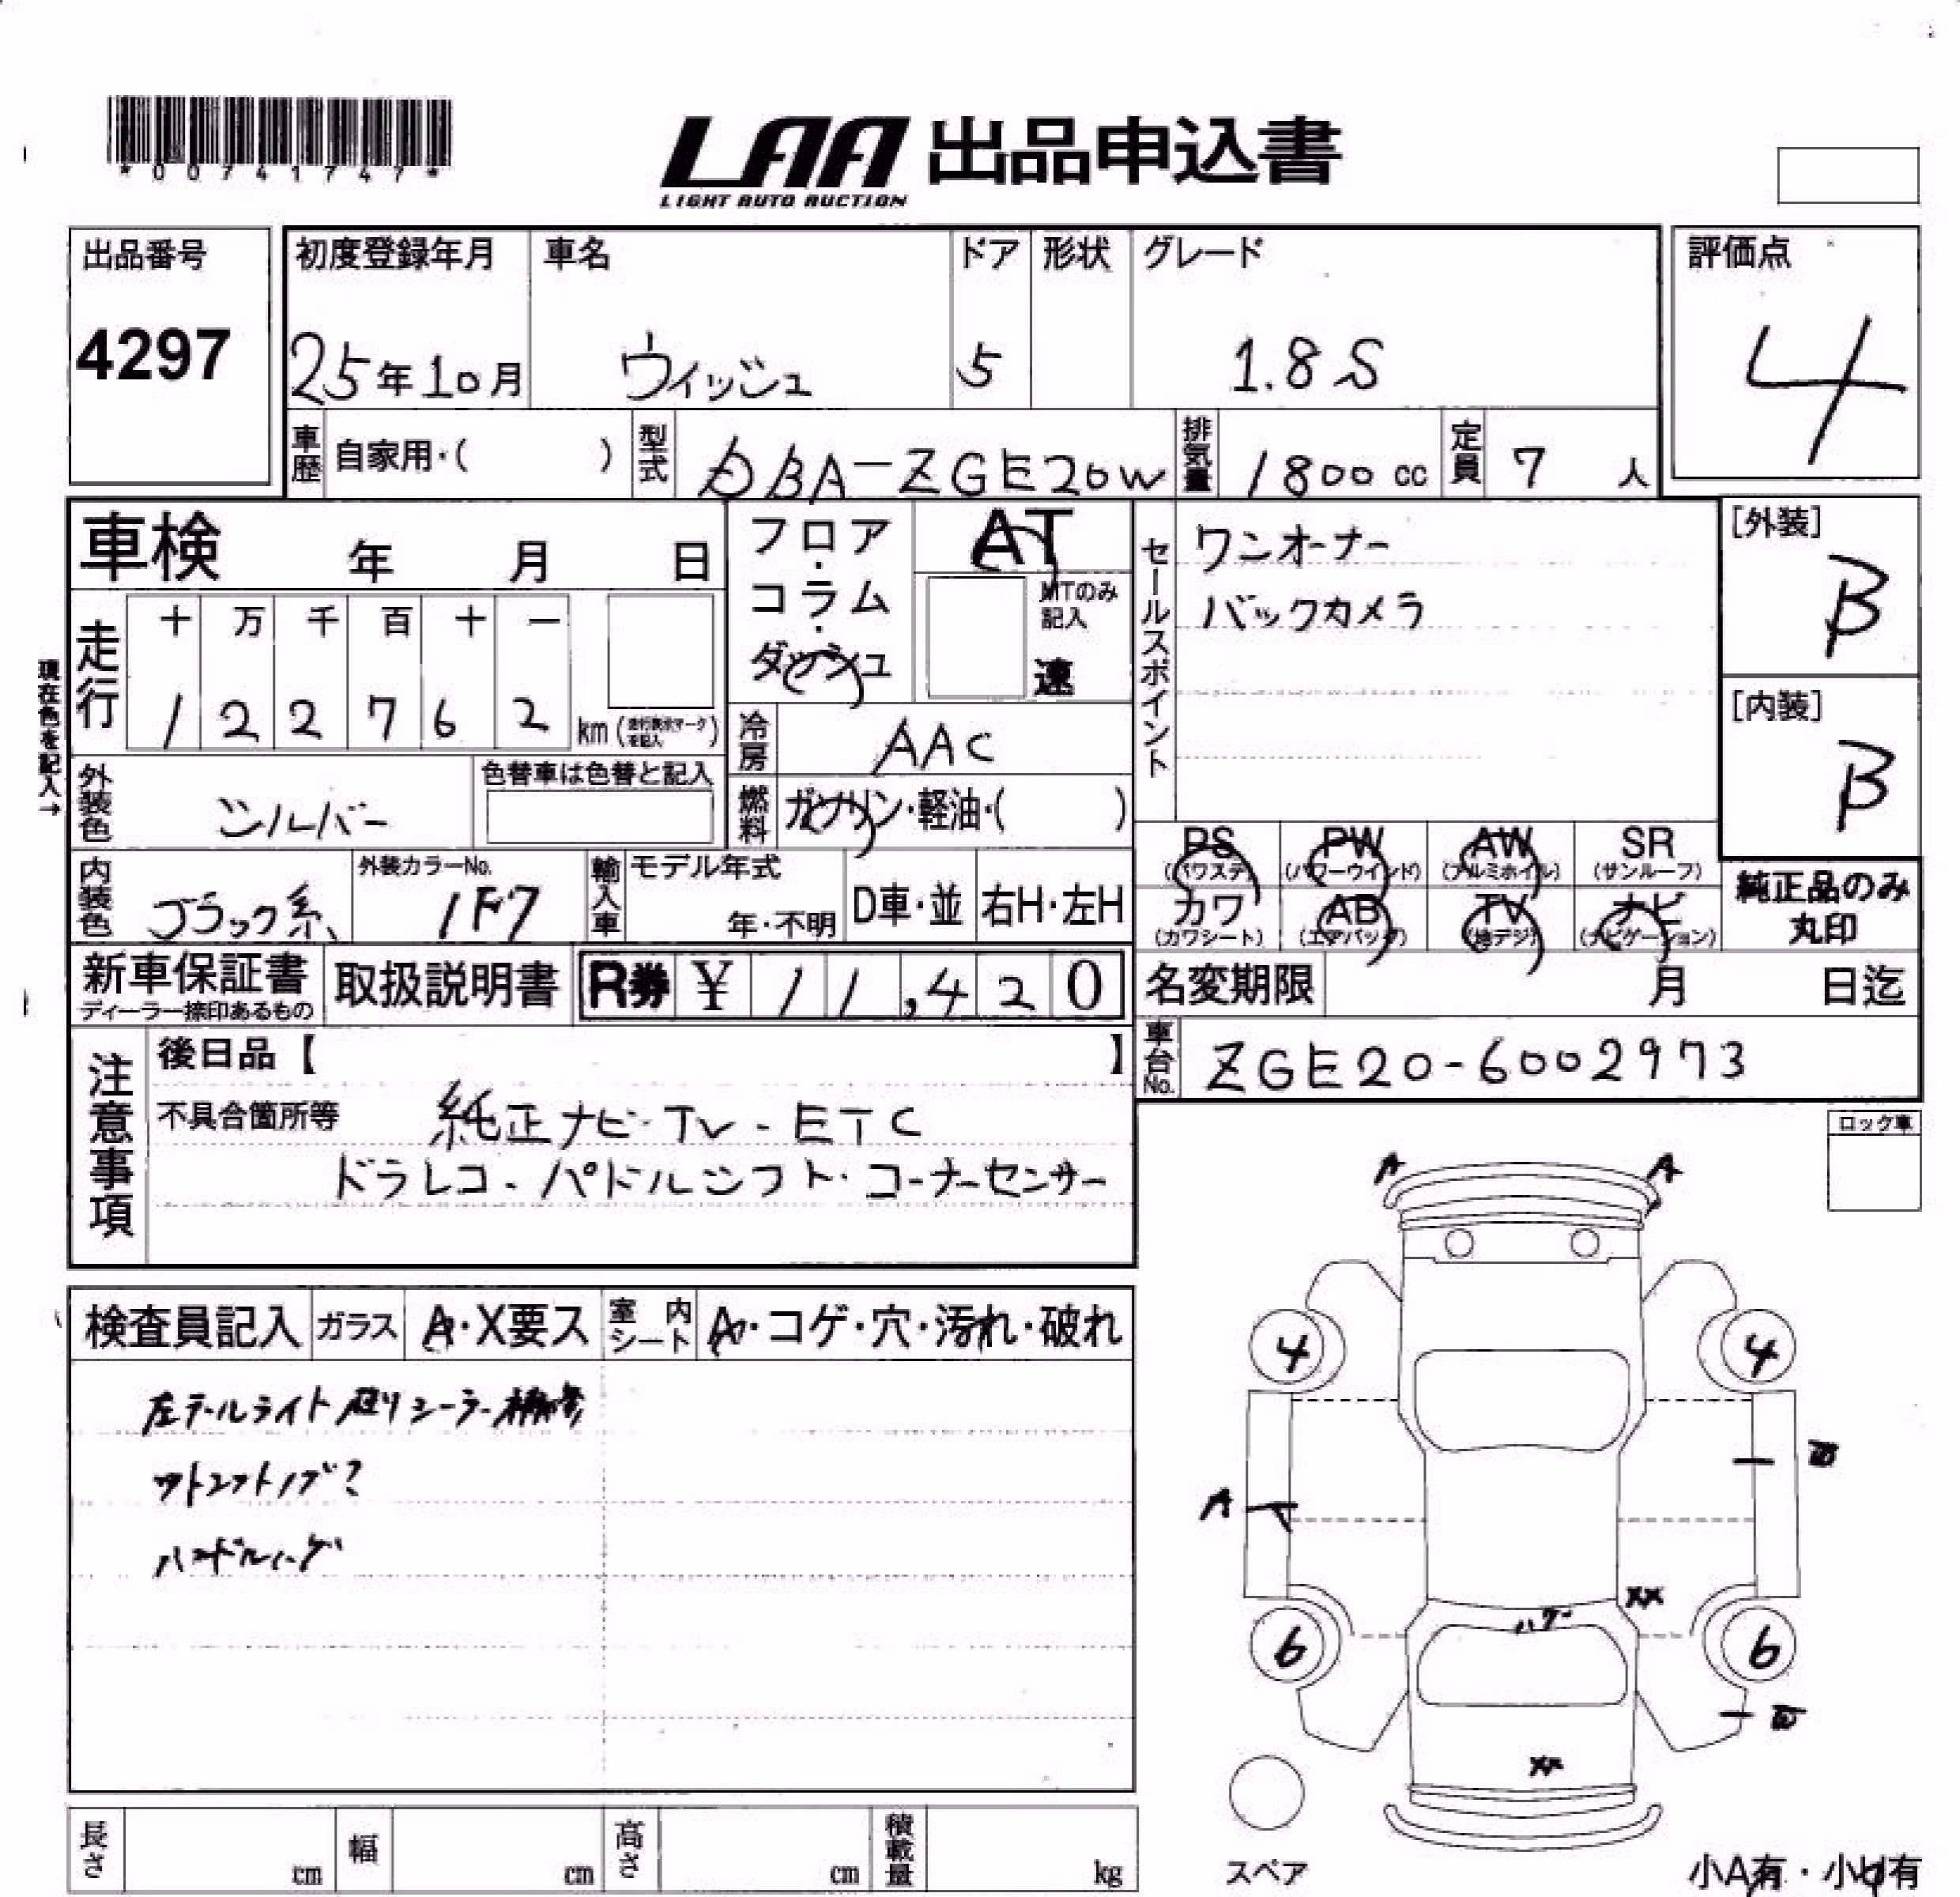 *00741747*
LAA 出品申込書
LIGHT AUTO AUCTION
出品番号
4297
初度登録年月 車名 ドア 形状 グレード
25年10月 ウィッシュ 5 1.8S
評価点
4
車歴 自家用・( ) 型式 DBA-ZGE20W 排気量 1800cc 定員 7人
車検 年 月 日
フロア・コラム・ダッシュ
AT
MTのみ記入
速
セールスポイント
ワンオーナー
バックカメラ
[外装]
B
[内装]
B
現在色を記入→
走行 十 万 千 百 十 一
1 2 2 7 6 2 km(走行表示マークを記入)
冷房 AAC
外装色 シルバー 色替車は色替と記入
燃料 ガソリン・軽油・( )
PS (パワステ) PW (パワーウインド) AW (アルミホイル) SR (サンルーフ)
カワ (カワシート) AB (エアバッグ) TV (地デジ) ナビ (ナビゲーション)
純正品のみ
丸印
内装色 ブラック系 外装カラーNo. 1F7 輸入車 モデル年式 年・不明 D車・並 右H・左H
新車保証書
ディーラー捺印あるもの
取扱説明書 R券 ¥11,420
名変期限 月 日迄
車台No. ZGE20-6002973
注意事項
後日品【 】
不具合箇所等 純正ナビ・TV・ETC
ドラレコ・パドルシフト・コーナーセンサー
ロック車
検査員記入 ガラス A・X要ス 室内シート A・コゲ・穴・汚れ・破れ
左テールライト シーラー
A A
4 4
A
XX
6 6
XX
スペア
長さ cm 幅 cm 高さ cm 積載量 kg
小A有・小U有